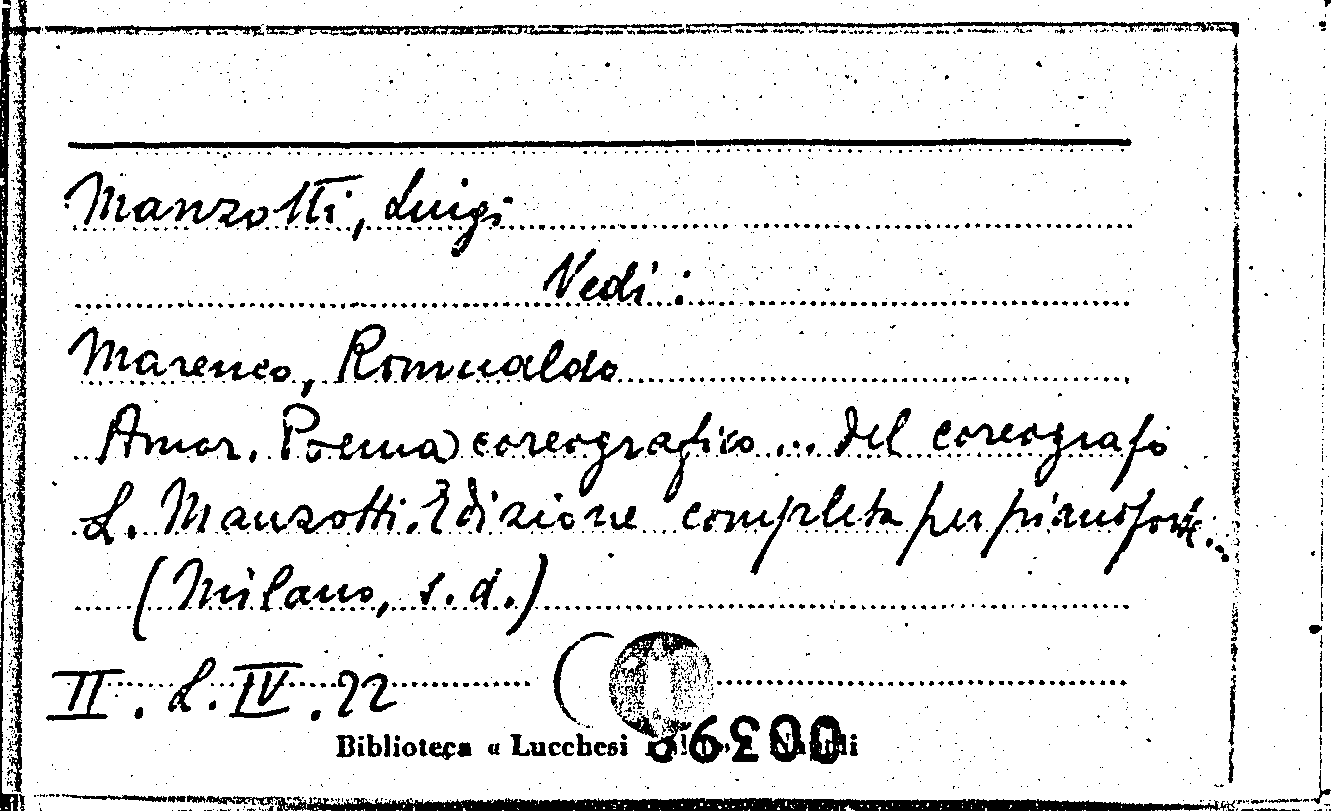 Manzotti, Luigi
Vedi :
Marenco, Romualdo
Amor. Poema coreografico ... del coreografo
L. Manzotti. Edizione completa per pianoforte...
(Milano, s.d.)
II. L. IV. 22
Biblioteca « Lucchesi